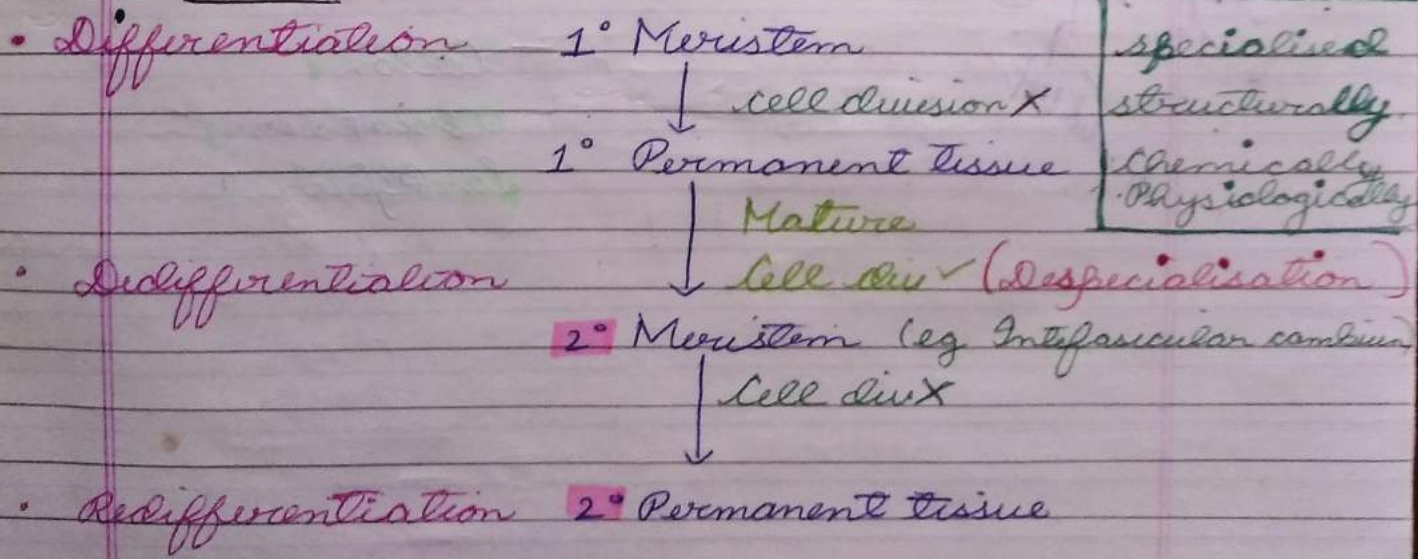 • Differentiation 1° Meristem
cell division X
1° Permanent tissue
specialised
structurally
Chemically
Physiologically
Mature
• Dedifferentiation Cell div ✓ (Despecialisation)
2° Meristem (eg Intefascicular cambium
Cell div X
• Redifferentiation 2° Permanent tissue